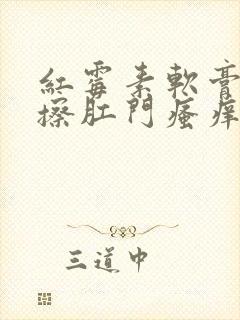 紅霉素軟膏
擦肛門瘙癢
三道中